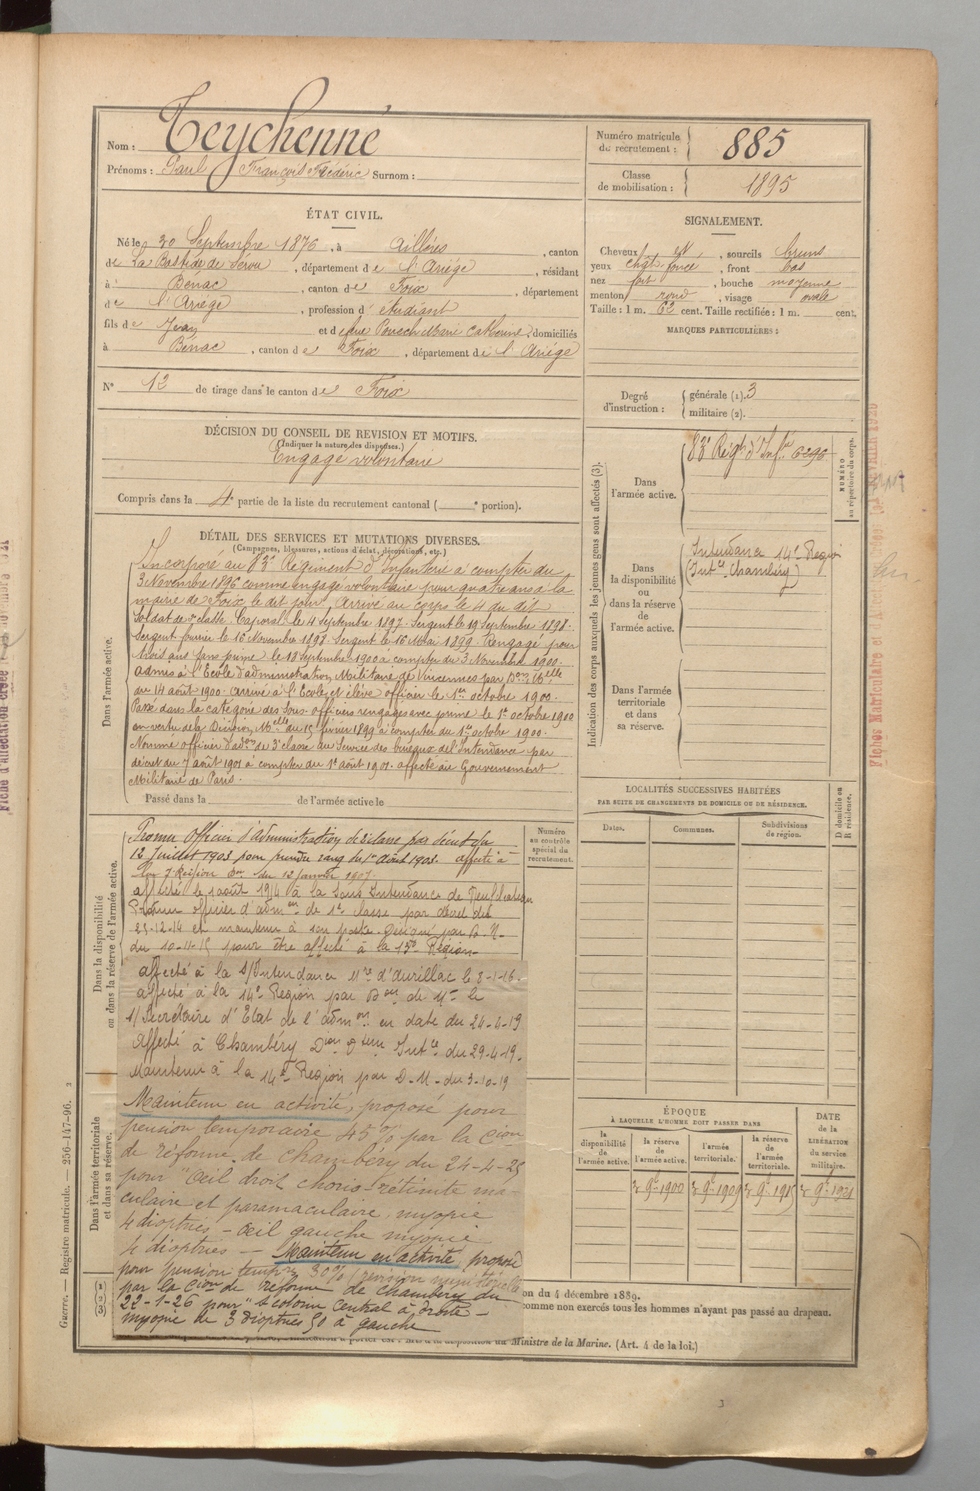 Nom : Teychenné
Prénoms : Paul François Frédéric Surnom :
Numéro matricule du recrutement : 885
Classe de mobilisation : 1895
ÉTAT CIVIL.
Né le 30 Septembre 1876, à Aillères, canton
de La Bastide de Sérou, département de l'Ariége, résidant
à Bénac, canton de Foix, département
de l'Ariége, profession d'étudiant
fils de Jean et de domiciliés
à Bénac, canton de Foix, département de l'Ariége
N° 12 de tirage dans le canton de Foix
SIGNALEMENT.
Cheveux, sourcils bruns
yeux chat. foncé, front bas
nez fort, bouche moyenne
menton rond, visage ovale
Taille : 1 m. 62 cent. Taille rectifiée : 1 m. cent.
MARQUES PARTICULIÈRES :
Degré d'instruction : générale (1). 3
militaire (2).
DÉCISION DU CONSEIL DE REVISION ET MOTIFS.
(Indiquer la nature des dispenses.)
Engagé volontaire
Compris dans la 4e partie de la liste du recrutement cantonal ( e portion).
DÉTAIL DES SERVICES ET MUTATIONS DIVERSES.
(Campagnes, blessures, actions d'éclat, décorations, etc.)
Dans l'armée active.
Incorporé au 83e Régiment d'Infanterie à compter du
3 Novembre 1896 comme engagé volontaire pour quatre ans à la
mairie de Foix le dit jour. Arrivé au corps le 4 du dit
Soldat de 2e classe. Caporal le 4 Septembre 1897. Sergent le 19 Septembre 1898.
Sergent fourrier le 16 Novembre 1898. Sergent le 16 Mai 1899. Rengagé pour
trois ans sans prime le 13 Septembre 1900 à compter du 3 Novembre 1900.
Admis à l'Ecole d'administration Militaire de Vincennes par Don Melle
du 14 août 1900. Arrivé à l'Ecole, et élève officier le 1er octobre 1900.
Passé dans la catégorie des sous-officiers rengagés avec prime le 1er octobre 1900
en vertu de la Décision Melle du 15 février 1899 à compter du 1er octobre 1900.
Nommé officier d'adon de 3e classe au Service des bureaux de l'Intendance par
décret du 7 août 1901 à compter du 1er août 1901. affecté au Gouvernement
Militaire de Paris.
Passé dans la de l'armée active le
Indication des corps auxquels les jeunes gens sont affectés (3).
Dans l'armée active.
83e Régt d'Infie 6296
NUMÉRO au répertoire du corps.
Dans la disponibilité ou dans la réserve de l'armée active.
Intendance 14e Région
(Intce Chambéry)
Dans l'armée territoriale et dans sa réserve.
LOCALITÉS SUCCESSIVES HABITÉES
PAR SUITE DE CHANGEMENTS DE DOMICILE OU DE RÉSIDENCE.
Dates. Communes. Subdivisions de région. D domicile ou R résidence.
Dans la disponibilité ou dans la réserve de l'armée active.
Numéro au contrôle spécial du recrutement.
Promu Officier d'Administration de 2e classe par décret du
12 Juillet 1903 pour prendre rang du 1er Août 1903. affecté à
Région Don du 12 janvier 1907.
affecté le 1 août 1914 à la Sous Intendance de Neufchateau
Promu officier d'admon de 1e classe par décret du
25-12-14 et maintenu à son poste. Désigné par D M.
du 10-4-15 pour être affecté à la 13e Région
affecté à la S/Intendance Mre d'Aurillac le 8-1-16.
affecté à la 14e Région par Don de Mr le
S/Secrétaire d'Etat de l'admon en date du 24-4-19
Affecté à Chambéry Don Intce du 29-4-19-
Maintenu à la 14e Région par D-M- du 3-10-19
Maintenu en activité, proposé pour
pension temporaire 45 % par la Cion
de réforme de Chambéry du 24-4-25
pour "Œil droit chorio-rétinite ma-
culaire et paramaculaire, myopie
4 dioptries - œil gauche myopie
4 dioptries -- Maintenu en activité proposé
pour pension tempre 30%
par la Cion de réforme de Chambéry du
22-1-26 pour "Scotome central à droite -
myopie de 3 dioptries 50 à gauche
Dans l'armée territoriale et dans sa réserve.
ÉPOQUE
À LAQUELLE L'HOMME DOIT PASSER DANS
la disponibilité de l'armée active.
la réserve de l'armée active.
l'armée territoriale.
la réserve de l'armée territoriale.
DATE de la LIBÉRATION du service militaire.
on du 4 décembre 1889.
comme non exercés tous les hommes n'ayant pas passé au drapeau.
Ministre de la Marine. (Art. 4 de la loi.)
Guerre. — Registre matricule. — 256-147-96.